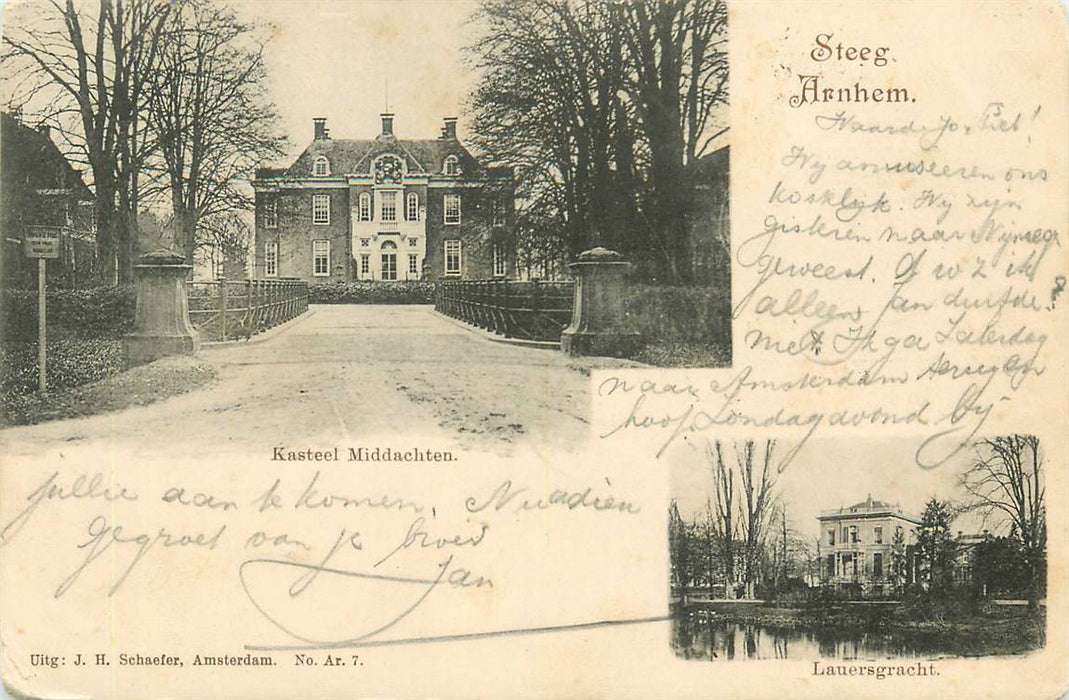 Steeg.
Arnhem.
Waarde Jo, Piet!
Wij amuseeren ons
kostelyk. Wij zyn
gisteren naar Nymeg.
geweest. Of wz ik
alleen aan durfde?
niet. Ik ga Zaterdag
naar Amsterdam terug en
hoop Zondagavond by
jullie aan te komen. Nu adieu
gegroet van je broer
Jan
Kasteel Middachten.
Lauersgracht.
Uitg: J. H. Schaefer, Amsterdam. No. Ar. 7.